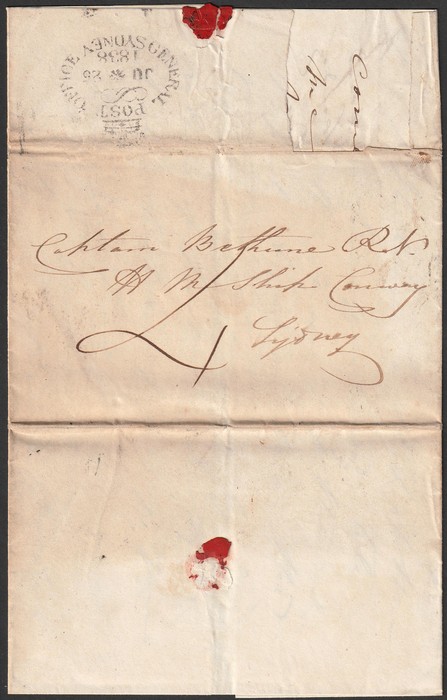 GENERAL POST OFFICE SYDNEY
JU 26
1838
Con
Captain Bethune R.N.
H M Ship Conway
Sydney
4